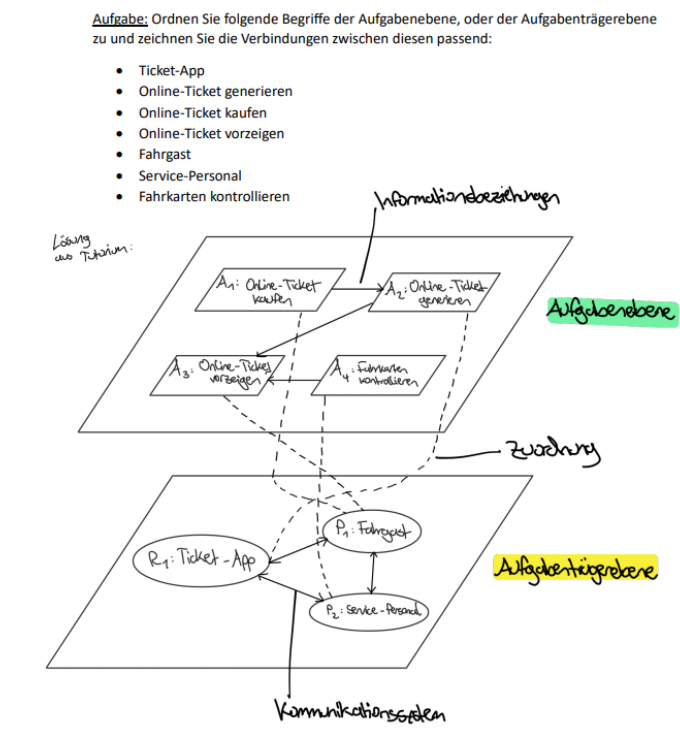 Aufgabe: Ordnen Sie folgende Begriffe der Aufgabenebene, oder der Aufgabenträgerebene
zu und zeichnen Sie die Verbindungen zwischen diesen passend:
• Ticket-App
• Online-Ticket generieren
• Online-Ticket kaufen
• Online-Ticket vorzeigen
• Fahrgast
• Service-Personal
• Fahrkarten kontrollieren
Informationsbeziehungen
Lösung
aus Tutorium:
A1: Online-Ticket
kaufen
A2: Online-Ticket
generieren
Aufgabenebene
A3: Online-Ticket
vorzeigen
A4: Fahrkarten
kontrollieren
Zuordnung
P1: Fahrgast
R1: Ticket-App
Aufgabenträgerebene
P2: Service-Personal
Kommunikationssystem